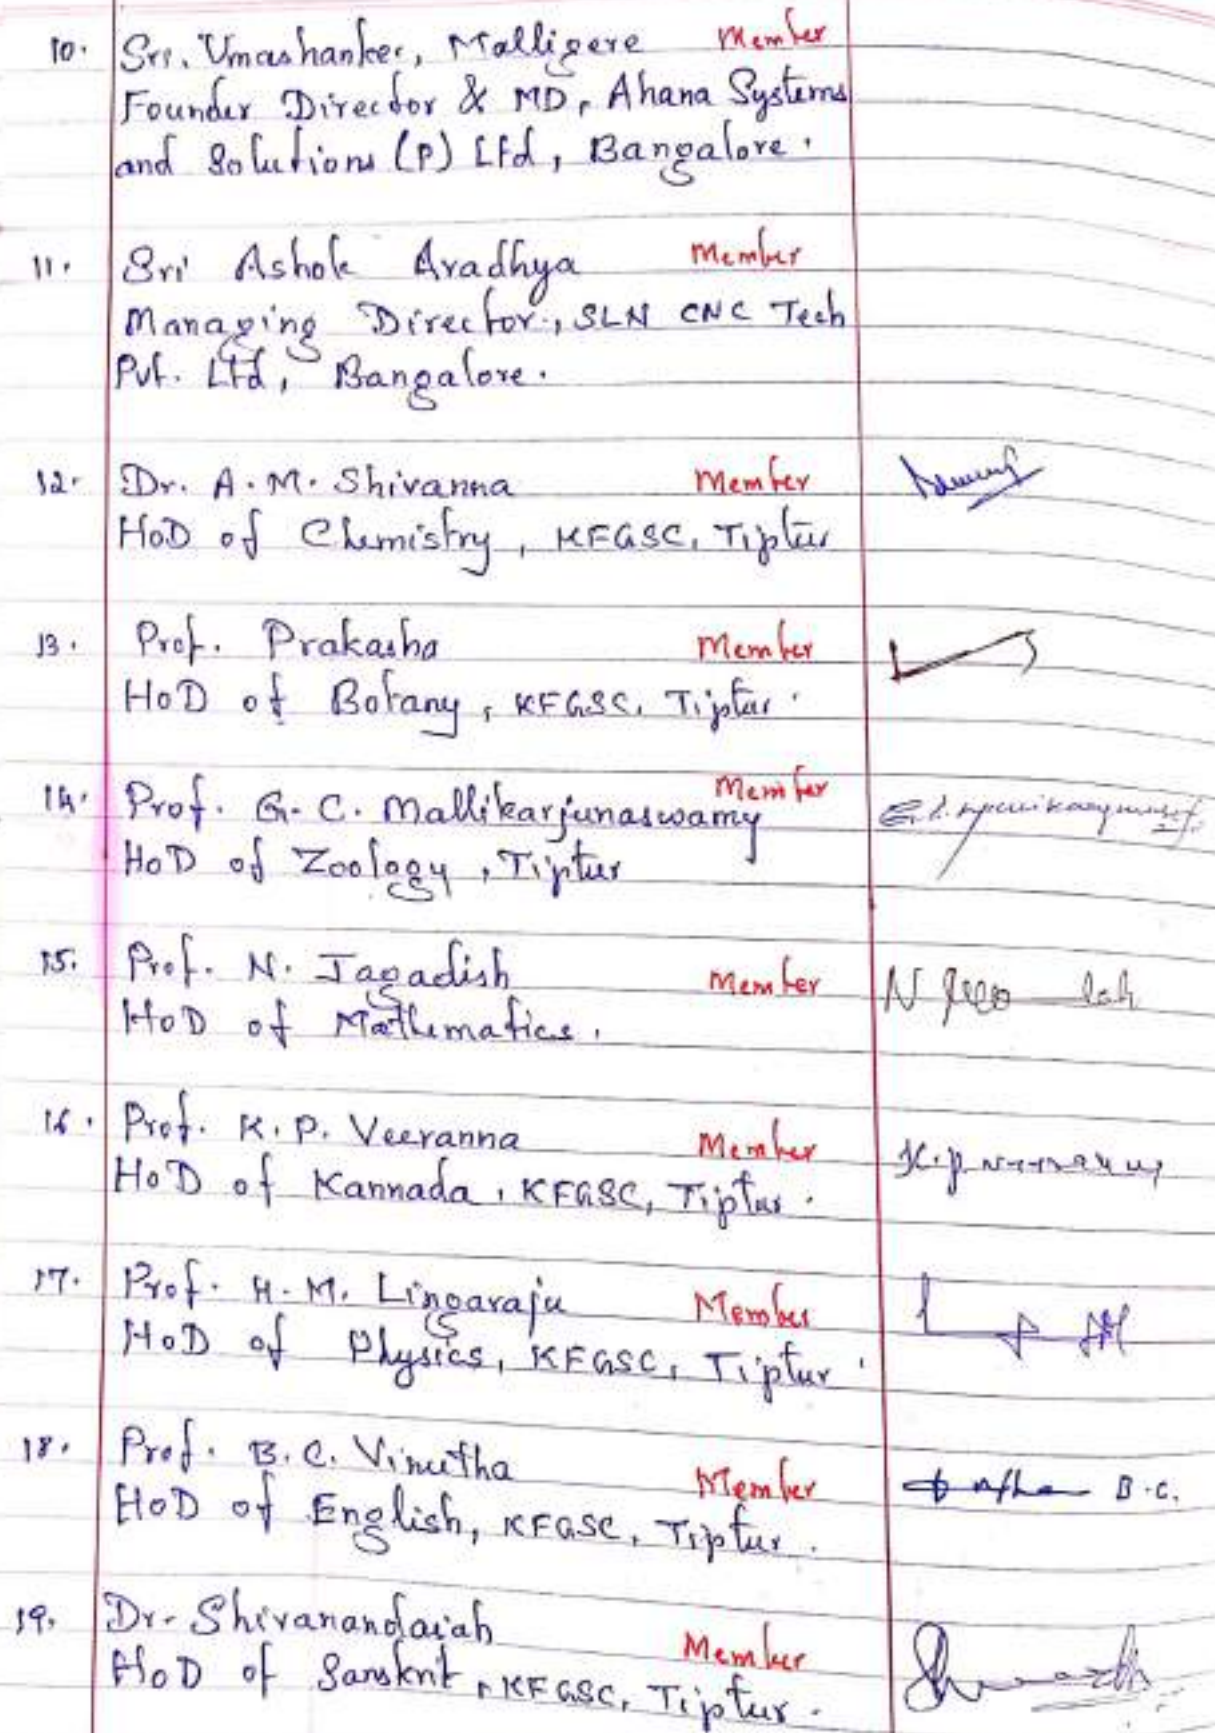 10. Sri. Umashanker, Malligere Member
Founder Director & MD, Ahana Systems
and Solutions (P) Ltd, Bangalore.
11. Sri Ashok Aradhya Member
Managing Director, SLN CNC Tech
Pvt. Ltd, Bangalore.
12. Dr. A.M. Shivanna Member
HoD of Chemistry, KFGSC, Tiptur
13. Prof. Prakasha Member
HoD of Botany, KFGSC, Tiptur.
14. Prof. G.C. Mallikarjunaswamy Member
HoD of Zoology, Tiptur
15. Prof. N. Jagadish Member N
HoD of Mathematics.
16. Prof. K.P. Veeranna Member K.P
HoD of Kannada, KFGSC, Tiptur.
17. Prof. H.M. Lingaraju Member
HoD of Physics, KFGSC, Tiptur.
18. Prof. B.C. Vinutha Member B.C.
HoD of English, KFGSC, Tiptur.
19. Dr. Shivanandaiah Member
HoD of Sanskrit, KFGSC, Tiptur.